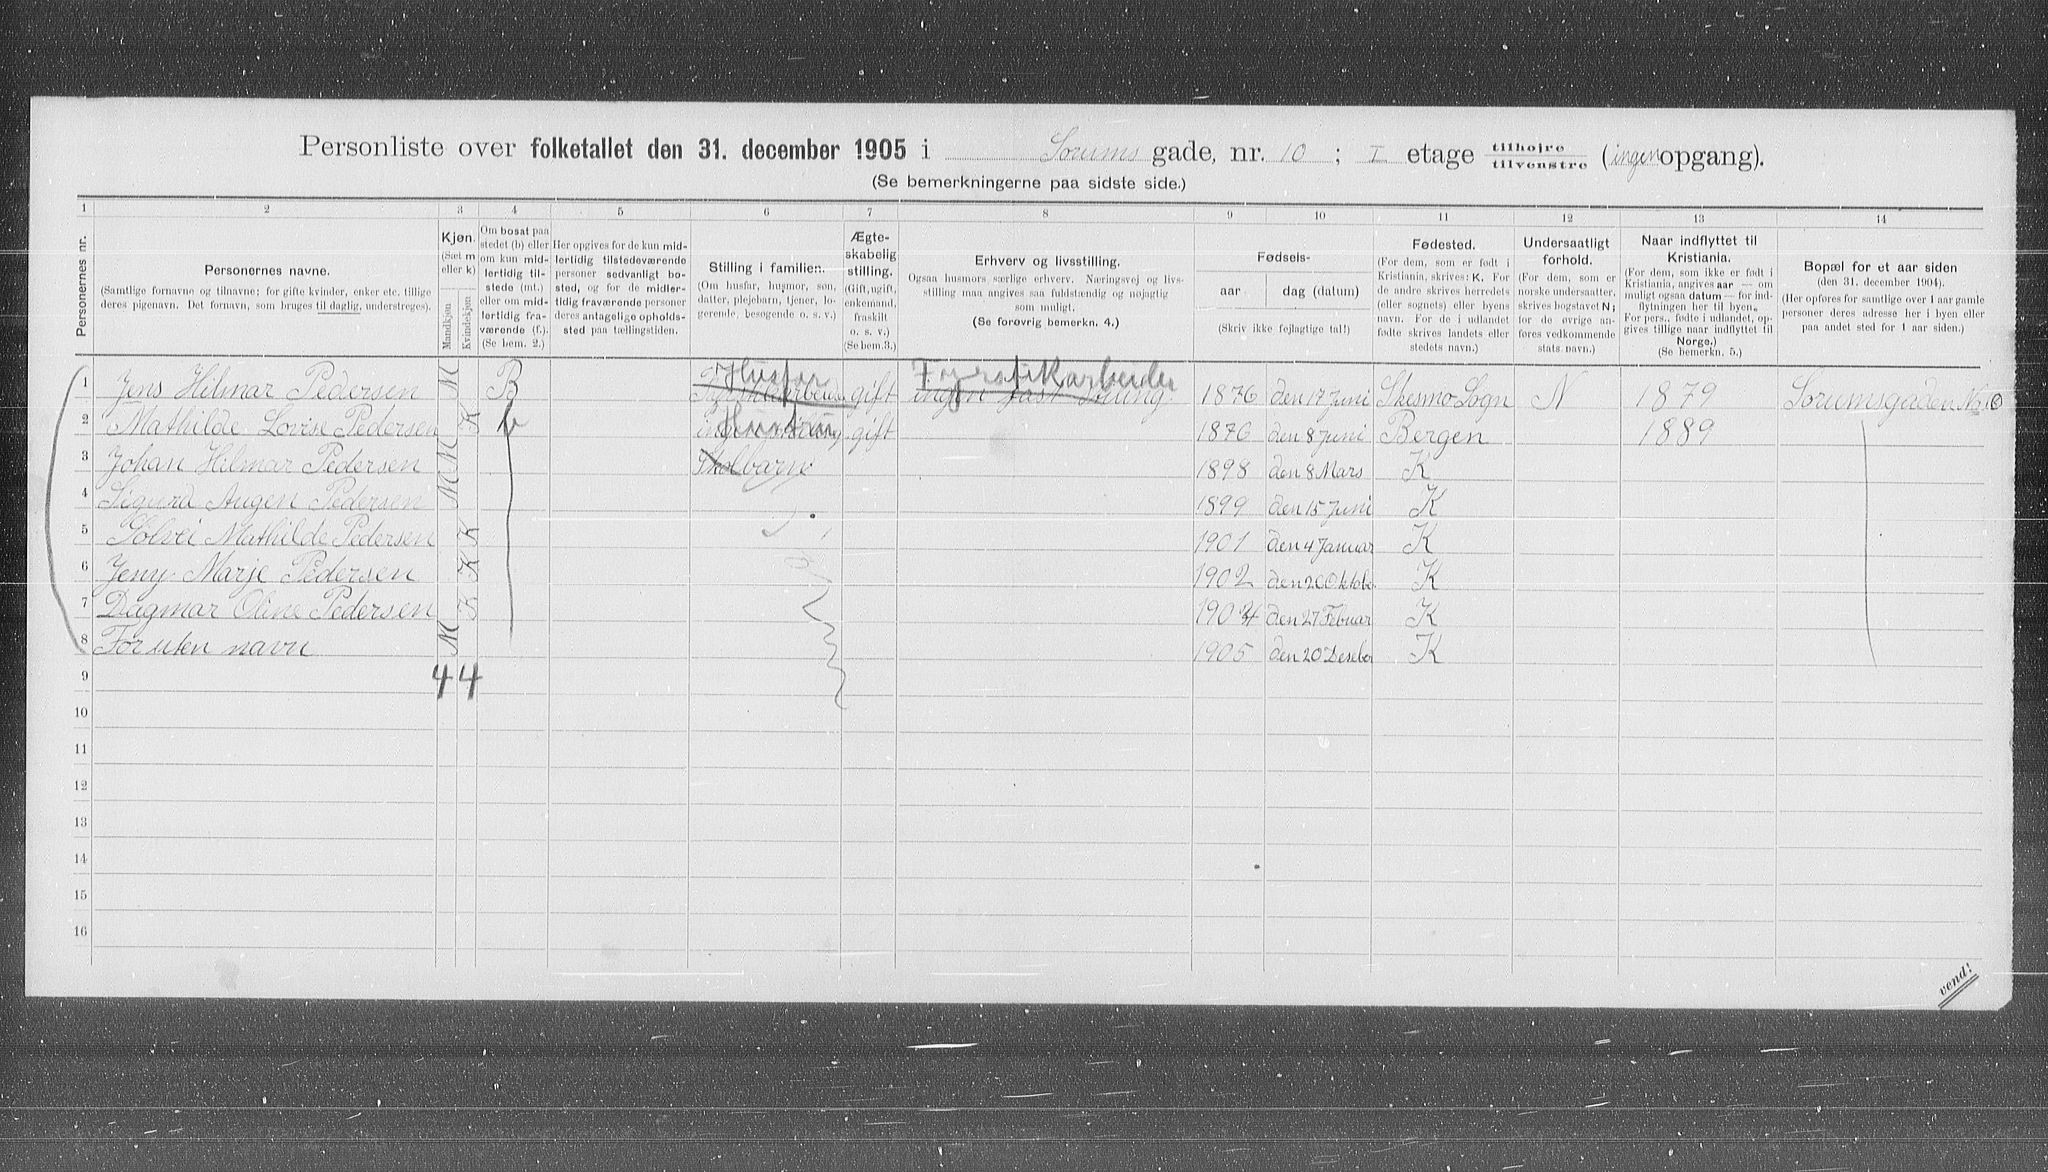 Personliste over folketallet den 31. december 1905 i Sorums gade, nr. 10 ; I etage tilhøjre / tilvenstre (ingen opgang).
(Se bemerkningerne paa sidste side.)
1 2 3 4 5 6 7 8 9 10 11 12 13 14
Personernes nr.
Personernes navne.
(Samtlige fornavne og tilnavne; for gifte kvinder, enker etc. tillige
deres pigenavn. Det fornavn, som bruges til daglig, understreges).
Kjøn.
(Sæt m
eller k)
Mandkjøn
Kvindekjøn
Om bosat paa
stedet (b) eller
om kun mid-
lertidig til-
stede (mt.)
eller om mid-
lertidig fra-
værende (f.).
(Se bem. 2.)
Her opgives for de kun mid-
lertidig tilstedeværende
personer sedvanligt bo-
sted, og for de midler-
tidig fraværende personer
deres antagelige opholds-
sted paa tællingstiden.
Stilling i familien.
(Om husfar, husmor, søn,
datter, plejebarn, tjener, lo-
gerende, besøgende o. s. v.)
Ægte-
skabelig
stilling.
(Gift, ugift,
enkemand,
fraskilt
o. s. v.)
(Se bem.3.)
Erhverv og livsstilling.
Ogsaa husmors særlige erhverv. Næringsvej og livs-
stilling maa angives saa fuldstændig og nøjagtig
som muligt.
(Se forøvrig bemerkn. 4.)
Fødsels-
aar
dag (datum)
(Skriv ikke fejlagtige tal!)
Fødested.
(For dem, som er født i
Kristiania, skrives: K. For
de andre skrives herredets
(eller sognets) eller byens
navn. For de i udlandet
fødte skrives landets eller
stedets navn.)
Undersaatligt
forhold.
(For dem, som er
norske undersaatter,
skrives bogstavet N;
for de øvrige an-
føres vedkommende
stats navn.)
Naar indflyttet til
Kristiania.
(For dem, som ikke er født i
Kristiania, angives aar — om
muligt ogsaa datum — for ind-
flytningen her til byen.
For pers. fødte i udlandet, op-
gives tillige naar indflyttet til
Norge.)
(Se bemerkn. 5.)
Bopæl for et aar siden
(den 31. december 1904).
(Her opføres for samtlige over 1 aar gamle
personer deres adresse her i byen eller
paa andet sted for 1 aar siden.)
1 Jens Hilmar Pedersen M B Husfar gift Fabrikarbeider ingen fast Stilling. 1876 den 17 Juni Skesmo Sogn N 1879 Sorumsgaden No 10
2 Mathilde Lovise Pedersen K b Hustru gift 1876 den 8 Juni Bergen 1889
3 Johan Hilmar Pedersen M Skolbarn 1898 den 8 Mars K
4 Sigurd Augen Pedersen M 1899 den 15 Juni K
5 Solvei Mathilde Pedersen K 1901 den 4 Januar K
6 Jeny Marje Pedersen K 1902 den 20 Oktobe K
7 Dagmar Oline Pedersen K 1904 den 27 Febuar K
8 Foruten navn M 1905 den 20 Deseber K
9 4 4
10
11
12
13
14
15
16
vend!